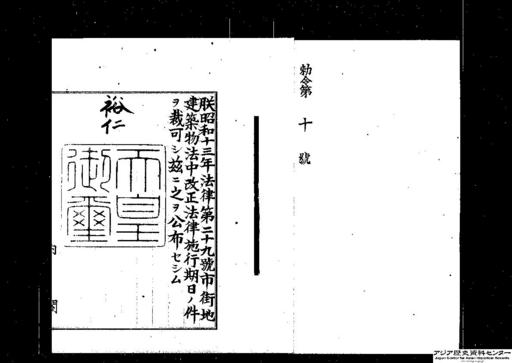 勅令第十號
朕昭和十三年法律第二十九號市街地
建築物法中改正法律施行期日ノ件
ヲ裁可シ茲ニ之ヲ公布セシム
裕仁
天皇御璽
内閣
アジア歴史資料センター
Japan Center for Asian Historical Records